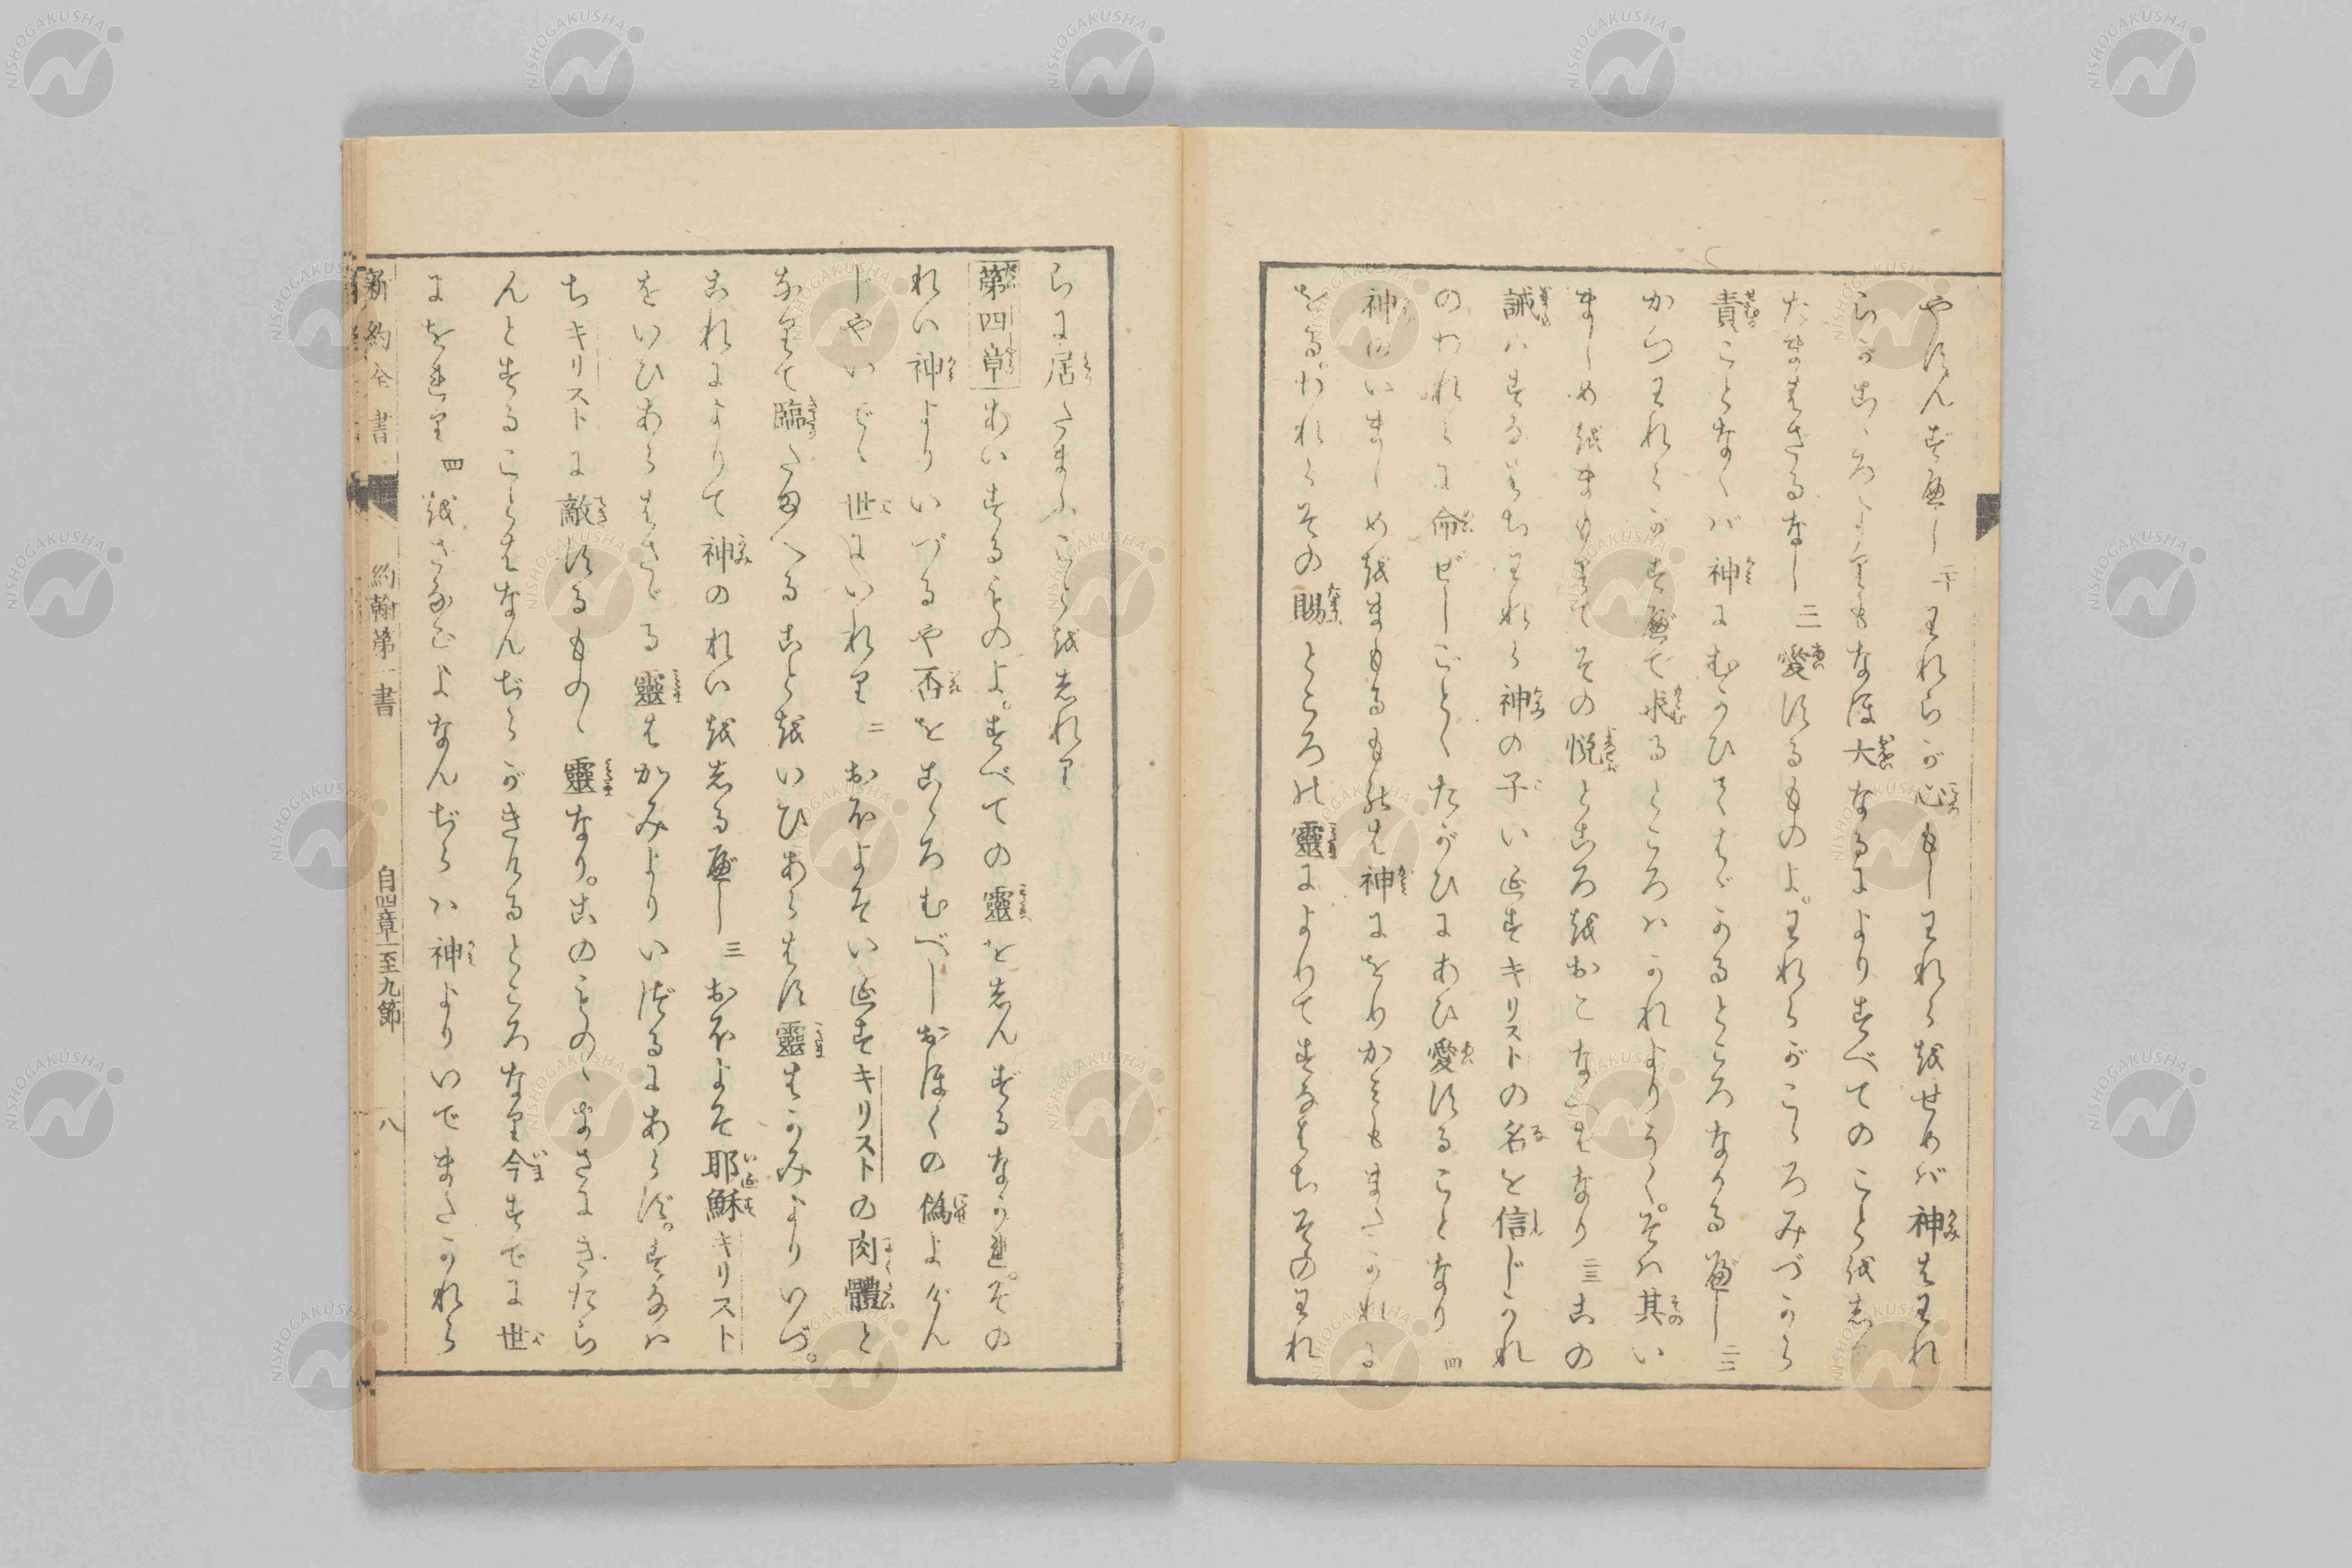 やすんず可し 二十 われらが心もしわれらをせめバ神はわれ
らがこゝろよりもなほ大なるによりすべてのことをしり
たまはざるなし 二一 愛するものよ。われらがこゝろみづから
責ことなくバ神にむかひてはゞかるところなかる可し 二二
かつわれらがすべて求るところハかれよりうく。そハ其い
ましめをまもりてその悦ところをおこなへばなり 二三 この
誡ハすなはちわれら神の子いエすキリストの名を信じかれ
のわれらに命ぜしごとくたがひにあひ愛することなり 二四
神のいましめをまもるものは神にをりかみもまたかれに
をる。われらその賜ところの靈によりてすなはちそのわれ
らに居たまふことをしれり
第四章 あいするものよ。すべての靈をしんずるなかれ。その
れい神よりいづるや否をこゝろむべしおほくの僞よげん
じやいでゝ世にいれり 二 おほよそいエすキリストの肉體と
なりて臨たまへることをいひあらはす靈はかみよりいづ。
これによりて神のれいをしる可し 三 おほよそ耶穌キリスト
をいひあらはさゞる靈はかみよりいづるにあらず。すなハ
ちキリストに敵するものゝ靈なり。このものゝまさにきたら
んとすることはなんぢらがきけるところなり今すでに世
にをれり 四 をさなごよなんぢらハ神よりいでまたかれら
新約全書 約翰第一書 自四章一至九節 八
NISHOGAKUSHA